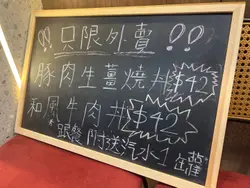 !! 只限外賣 !!
豚肉生薑燒丼$42
和風牛肉丼$42
*跟餐附送汽水1罐